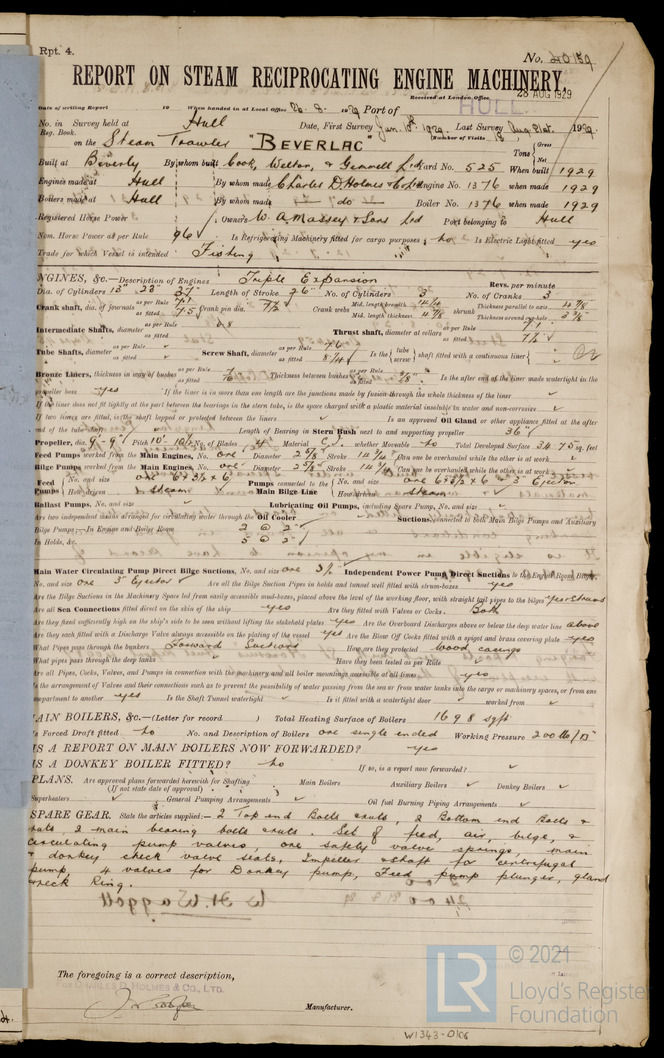 Rpt. 4.
No. 40159
REPORT ON STEAM RECIPROCATING ENGINE MACHINERY.
Received at London Office 28 AUG 1929
Date of writing Report 19 When handed in at Local Office 26. 8. 1929 Port of HULL
No. in Survey held at Hull Date, First Survey Jan. 1929. Last Survey Aug 21st. 1929.
Reg. Book. (Number of Visits
on the Steam Trawler "BEVERLAC" Tons Gross Net
Built at Beverly By whom built Cook, Welton, & Gemmell Ltd Yard No. 525 When built 1929
Engines made at Hull By whom made Charles D. Holmes & Co Ltd Engine No. 1376 when made 1929
Boilers made at Hull By whom made do Boiler No. 1376 when made 1929
Registered Horse Power Owners W. A. Massey & Sons Ltd Port belonging to Hull
Nom. Horse Power as per Rule 96 Is Refrigerating Machinery fitted for cargo purposes no Is Electric Light fitted yes
Trade for which Vessel is intended Fishing
ENGINES, &c.—Description of Engines Triple Expansion Revs. per minute
Dia. of Cylinders 13" 23" 37" Length of Stroke 26" No. of Cylinders 3 No. of Cranks 3
Crank shaft, dia. of journals as per Rule 7.1 as fitted 7.5 Crank pin dia. 7½ Crank webs Mid. length breadth Mid. length thickness 4 7/8 shrunk Thickness parallel to axis 4 7/8 Thickness around eye-hole
Intermediate Shafts, diameter as per Rule as fitted Thrust shaft, diameter at collars as per Rule 7.1 as fitted 7½
Tube Shafts, diameter as per Rule as fitted Screw Shaft, diameter as per Rule as fitted 8¼ Is the tube screw shaft fitted with a continuous liner
Bronze Liners, thickness in way of bushes as per Rule as fitted Thickness between bushes as per Rule as fitted Is the after end of the liner made watertight in the
propeller boss yes If the liner is in more than one length are the junctions made by fusion through the whole thickness of the liner
If the liner does not fit tightly at the part between the bearings in the stern tube, is the space charged with a plastic material insoluble in water and non-corrosive
If two liners are fitted, is the shaft lapped or protected between the liners Is an approved Oil Gland or other appliance fitted at the after
end of the tube Length of Bearing in Stern Bush next to and supporting propeller 36"
Propeller, dia. 9'-9" Pitch 10'-10½ No. of Blades 4 Material C.I. whether Moveable no Total Developed Surface 34.75 sq. feet
Feed Pumps worked from the Main Engines, No. one Diameter 2 5/8" Stroke 14¾ Can one be overhauled while the other is at work
Bilge Pumps worked from the Main Engines, No. one Diameter 2 5/8" Stroke 14¾ Can one be overhauled while the other is at work
Feed Pumps No. and size one 6 × 3½ × 6 How driven steam Pumps connected to the Main Bilge Line No. and size one 6 × 3½ × 6 3" Ejector How driven steam
Ballast Pumps, No. and size Lubricating Oil Pumps, including Spare Pump, No. and size
Are two independent means arranged for circulating water through the Oil Cooler Suctions, connected to both Main Bilge Pumps and Auxiliary
Bilge Pumps;—In Engine and Boiler Room 2 @ 2"
In Holds, &c. 3 @ 2"
Main Water Circulating Pump Direct Bilge Suctions, No. and size one 3½ Independent Power Pump Direct Suctions to the Engine Room Bilges,
No. and size one 3" Ejector Are all the Bilge Suction Pipes in holds and tunnel well fitted with strum-boxes yes
Are the Bilge Suctions in the Machinery Space led from easily accessible mud-boxes, placed above the level of the working floor, with straight tail pipes to the bilges yes
Are all Sea Connections fitted direct on the skin of the ship yes Are they fitted with Valves or Cocks Both
Are they fixed sufficiently high on the ship's side to be seen without lifting the stokehold plates yes Are the Overboard Discharges above or below the deep water line above
Are they each fitted with a Discharge Valve always accessible on the plating of the vessel yes Are the Blow Off Cocks fitted with a spigot and brass covering plate yes
What Pipes pass through the bunkers Forward Suctions How are they protected Wood casings
What pipes pass through the deep tanks Have they been tested as per Rule
Are all Pipes, Cocks, Valves, and Pumps in connection with the machinery and all boiler mountings accessible at all times yes
Is the arrangement of Valves and their connections such as to prevent the possibility of water passing from the sea or from water tanks into the cargo or machinery spaces, or from one
compartment to another yes Is the Shaft Tunnel watertight Is it fitted with a watertight door worked from
MAIN BOILERS, &c.—(Letter for record ) Total Heating Surface of Boilers 1698 sq ft
Is Forced Draft fitted no No. and Description of Boilers one single ended Working Pressure 200 lb/□"
IS A REPORT ON MAIN BOILERS NOW FORWARDED? yes
IS A DONKEY BOILER FITTED? no If so, is a report now forwarded?
PLANS. Are approved plans forwarded herewith for Shafting Main Boilers Auxiliary Boilers Donkey Boilers
(If not state date of approval)
Superheaters General Pumping Arrangements Oil fuel Burning Piping Arrangements
SPARE GEAR. State the articles supplied:— 2 Top end Bolts & nuts, 2 Bottom end Bolts &
nuts, 2 main bearing bolts & nuts. Set of feed, air, bilge, &
circulating pump valves, one safety valve springs, main
& donkey check valve seats, Impeller & shaft for centrifugal
pump, 4 valves for Donkey pump, Feed pump plunger, gland
& neck Ring.
The foregoing is a correct description,
FOR CHARLES D. HOLMES & CO., LTD.
Manufacturer.
W1343-0106
LR
© 2021
Lloyd's Register
Foundation